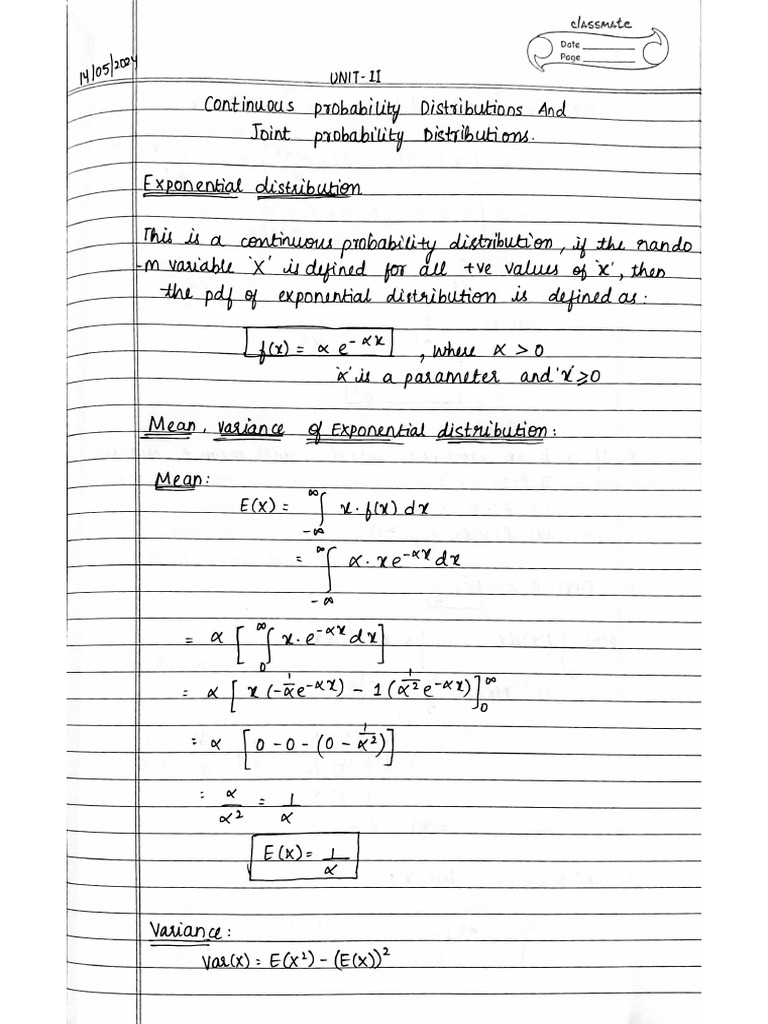 classmate
Date
Page
14/05/2024
UNIT-II
Continuous probability Distributions And
Joint probability Distributions.
Exponential distribution
This is a continuous probability distribution, if the rando
-m variable 'X' is defined for all +ve values of 'x', then
the pdf of exponential distribution is defined as:
f(x) = α e^{-αx} , where α > 0
'α' is a parameter and 'x' ≥ 0
Mean, variance of Exponential distribution:
Mean:
E(X) = ∫_{-∞}^{∞} x · f(x) dx
= ∫_{-∞}^{∞} α · x e^{-αx} dx
= α [ ∫_{0}^{∞} x · e^{-αx} dx ]
= α [ x (-1/α e^{-αx}) - 1 (1/α² e^{-αx}) ]_{0}^{∞}
= α [ 0 - 0 - (0 - 1/α²) ]
= α/α² = 1/α
E(X) = 1/α
Variance:
Var(X) = E(X²) - (E(X))²